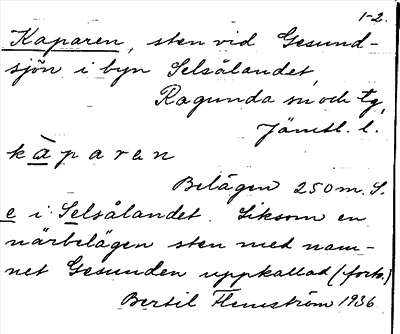 1-2.
Kaparen, sten vid Gesund-
sjön i byn Selsålandet,
Ragunda sn och tg,
Jämtl. l.
kàparen
Belägen 250 m. S.
e i Selsålandet. Liksom en
närbelägen sten med nam-
net Gesunden uppkallad (forts.)
Bertil Flemström 1936